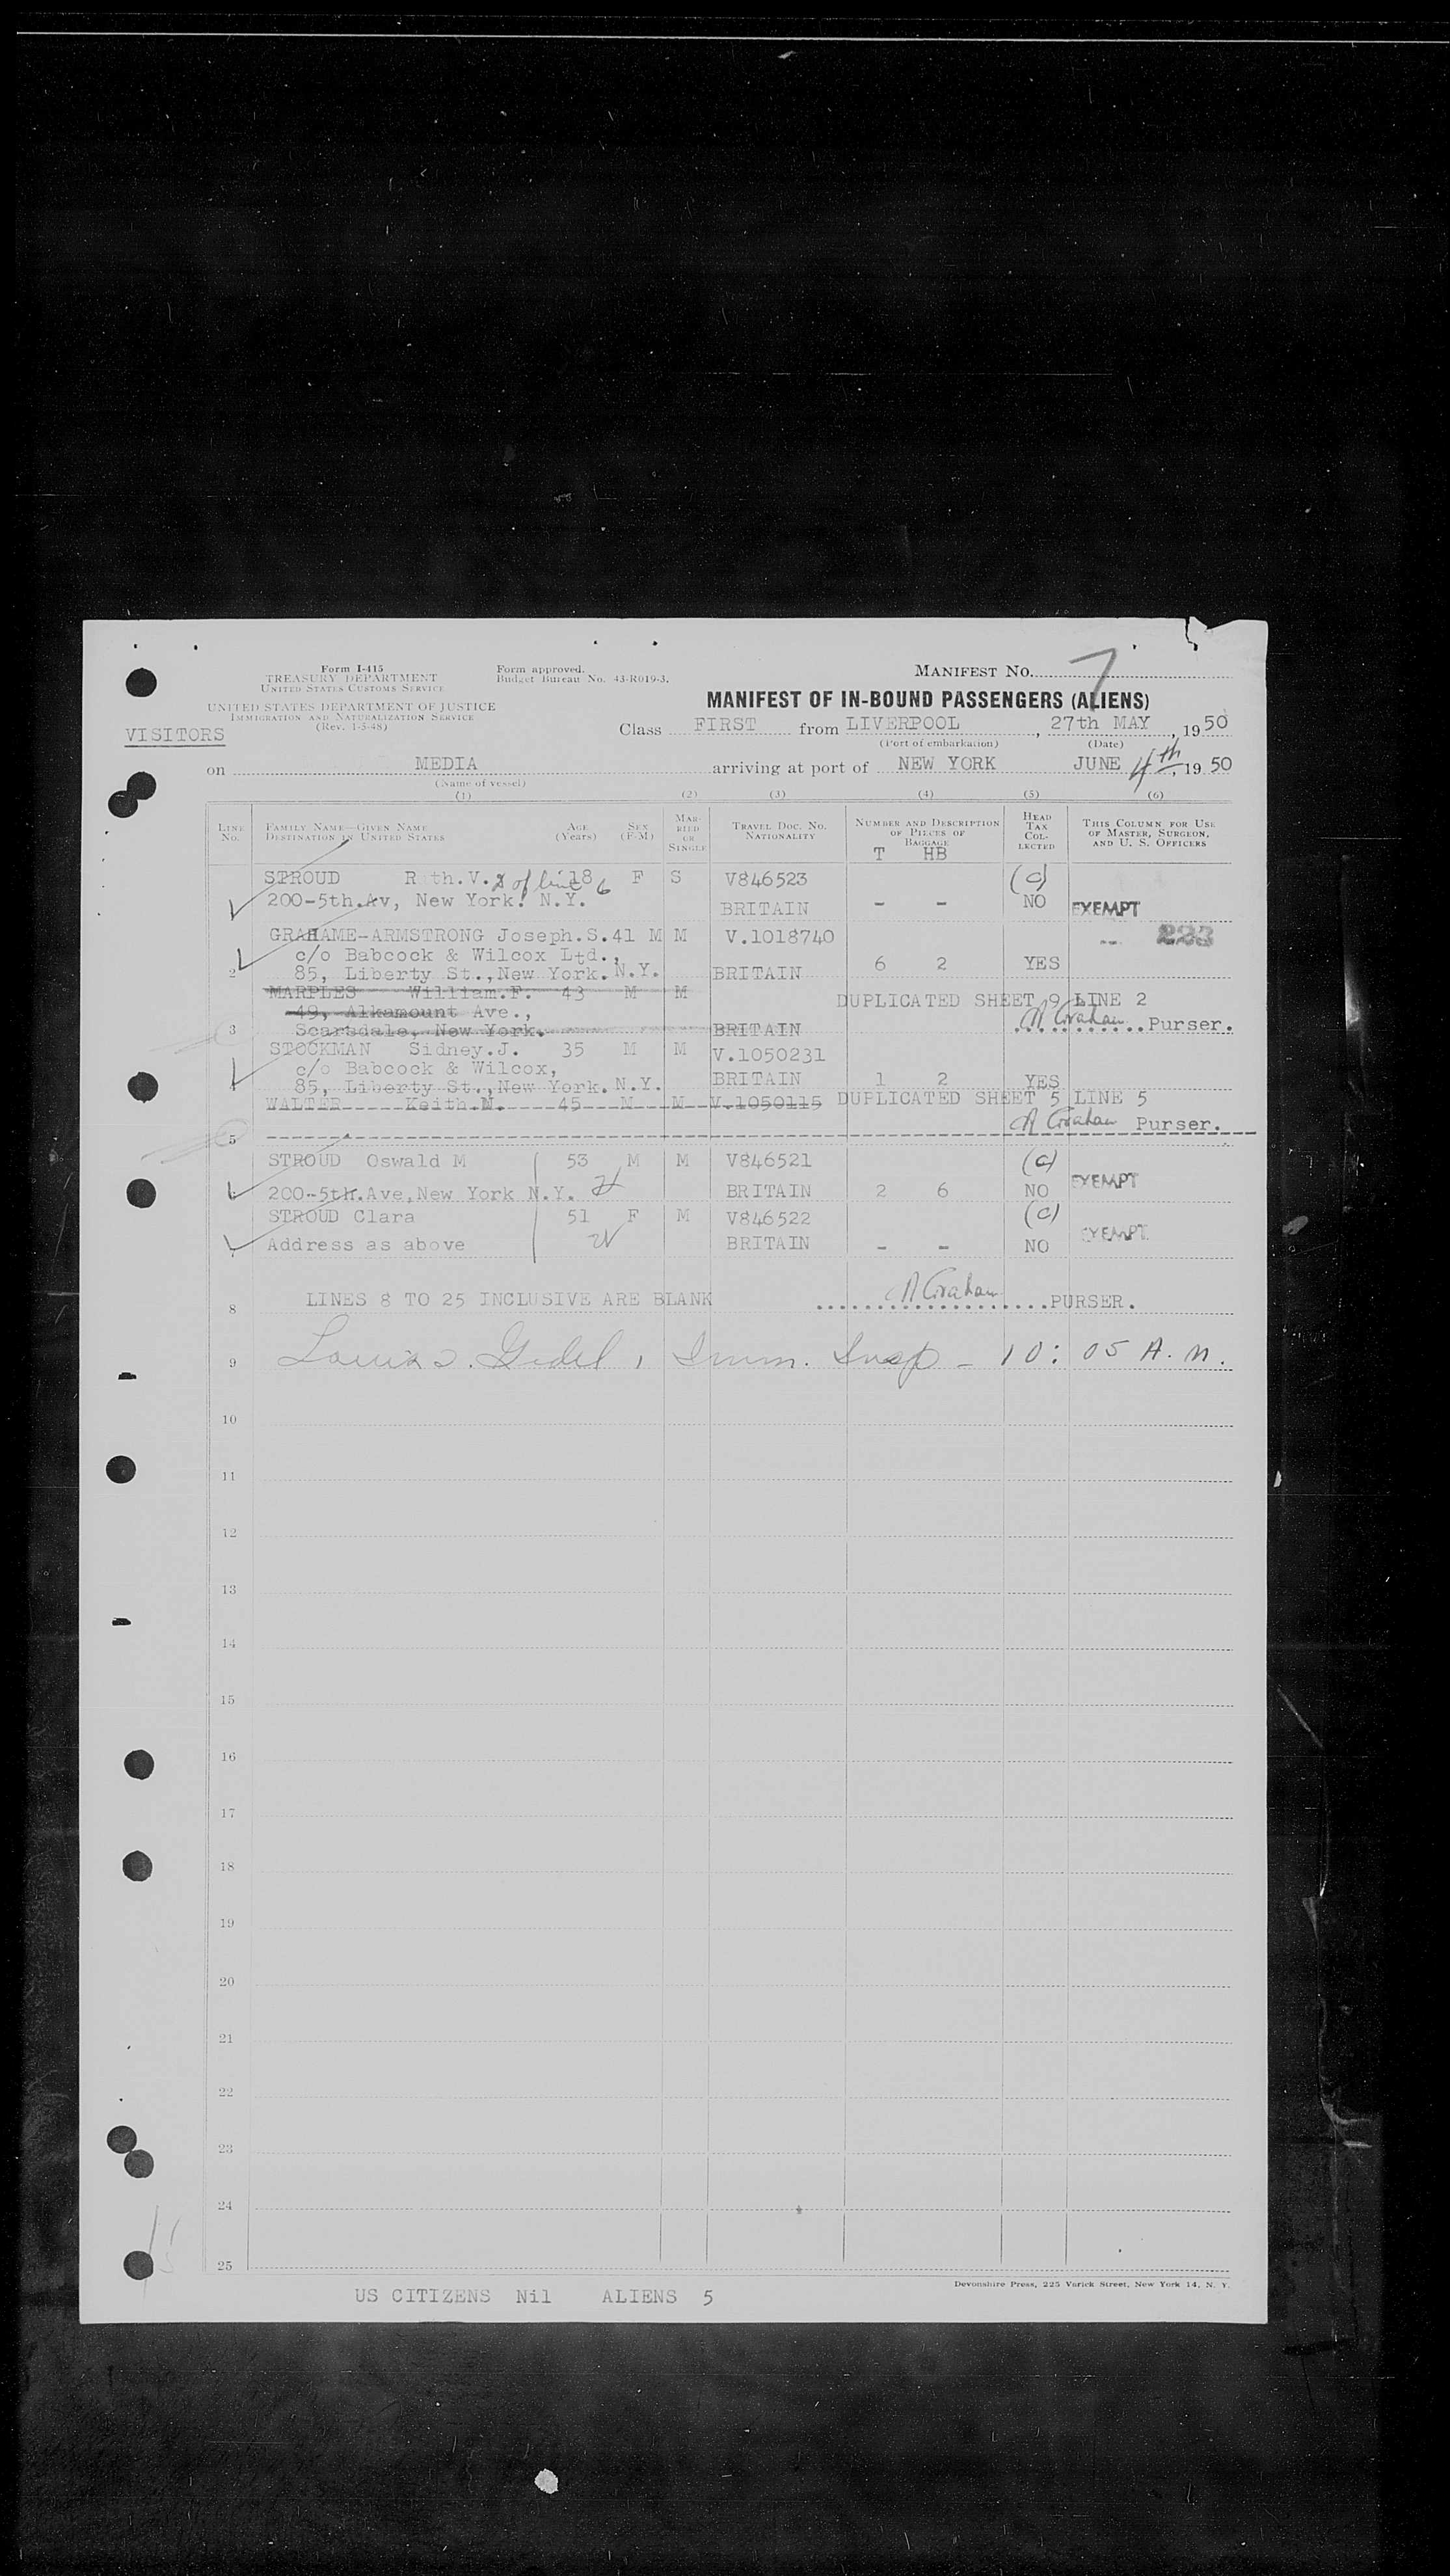 Form I-415
TREASURY DEPARTMENT
UNITED STATES CUSTOMS SERVICE
UNITED STATES DEPARTMENT OF JUSTICE
IMMIGRATION AND NATURALIZATION SERVICE
(Rev. 1-3-48)
Form approved.
Budget Bureau No. 43-R019-3.
MANIFEST NO. 7
MANIFEST OF IN-BOUND PASSENGERS (ALIENS)
VISITORS
Class FIRST from LIVERPOOL, 27th MAY, 1950
(Port of embarkation) (Date)
on MEDIA arriving at port of NEW YORK JUNE 4th, 1950
(Name of vessel)
(1) (2) (3) (4) (5) (6)
LINE NO.
FAMILY NAME—GIVEN NAME
DESTINATION IN UNITED STATES
AGE (Years)
SEX (F-M)
MARRIED OR SINGLE
TRAVEL DOC. NO. NATIONALITY
NUMBER AND DESCRIPTION OF PIECES OF BAGGAGE
T HB
HEAD TAX COLLECTED
THIS COLUMN FOR USE OF MASTER, SURGEON, AND U. S. OFFICERS
STROUD R th.V. of line 6 18 F S V846523 (c)
200-5th.Av, New York. N.Y. BRITAIN - - NO EXEMPT
GRAHAME-ARMSTRONG Joseph.S. 41 M M V.1018740 233
c/o Babcock & Wilcox Ltd.,
2 85, Liberty St., New York. N.Y. BRITAIN 6 2 YES
MARPLES William.F. 43 M M DUPLICATED SHEET 9 LINE 2
49, Alkamount Ave.,
3 Scarsdale, New York. BRITAIN A Graham Purser.
STOCKMAN Sidney.J. 35 M M V.1050231
c/o Babcock & Wilcox,
85, Liberty St., New York. N.Y. BRITAIN 1 2 YES
WALTER Keith.N. 45 M M V.1050115 DUPLICATED SHEET 5 LINE 5
5 A Graham Purser.
STROUD Oswald M 53 M M V846521 (c)
200-5th.Ave, New York N.Y. BRITAIN 2 6 NO EXEMPT
STROUD Clara 51 F M V846522 (c)
Address as above BRITAIN - - NO EXEMPT
8 LINES 8 TO 25 INCLUSIVE ARE BLANK A Graham PURSER.
9 Louis Imm. Insp - 10:05 A.M.
10
11
12
13
14
15
16
17
18
19
20
21
22
23
24
25
US CITIZENS Nil ALIENS 5
Devonshire Press, 225 Varick Street, New York 14, N. Y.